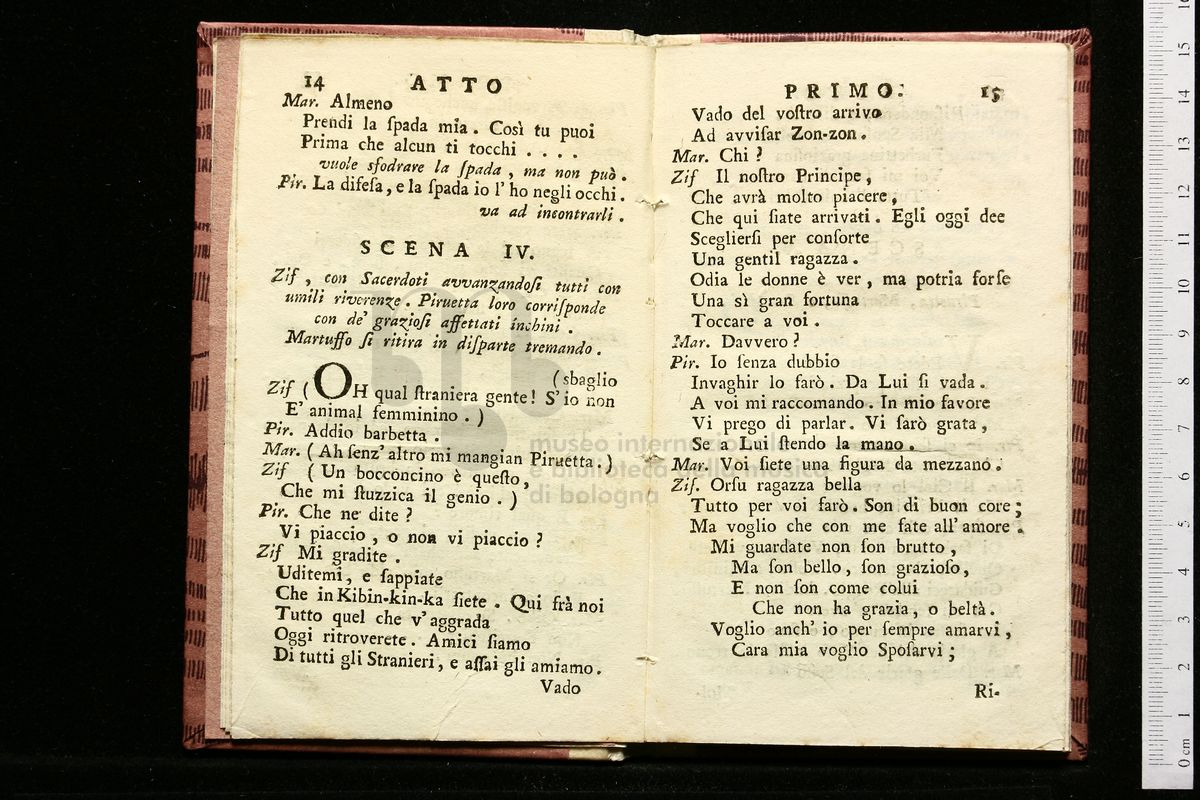 14 ATTO
Mar. Almeno
Prendi la ſpada mia. Così tu puoi
Prima che alcun ti tocchi . . . .
vuole sfodrare la ſpada, ma non può.
Pir. La difeſa, e la ſpada io l' ho negli occhi.
va ad incontrarli.
SCENA IV.
Zif, con Sacerdoti avvanzandoſi tutti con
umili riverenze. Piruetta loro corriſponde
con de' grazioſi affettati inchini.
Martuffo ſi ritira in diſparte tremando.
(sbaglio
Zif (OH qual ſtraniera gente! S' io non
E' animal femminino.)
Pir. Addio barbetta.
Mar. (Ah ſenz' altro mi mangian Piruetta.)
Zif (Un bocconcino è queſto,
Che mi ſtuzzica il genio.)
Pir. Che ne dite?
Vi piaccio, o non vi piaccio?
Zif Mi gradite.
Uditemi, e ſappiate
Che in Kibin-kin-ka ſiete. Qui frà noi
Tutto quel che v' aggrada
Oggi ritroverete. Amici ſiamo
Di tutti gli Stranieri, e aſſai gli amiamo.
Vado
PRIMO. 15
Vado del voſtro arrivo
Ad avviſar Zon-zon.
Mar. Chi?
Zif Il noſtro Principe,
Che avrà molto piacere,
Che qui ſiate arrivati. Egli oggi dee
Sceglierſi per conſorte
Una gentil ragazza.
Odia le donne è ver, ma potria forſe
Una sì gran fortuna
Toccare a voi.
Mar. Davvero?
Pir. Io ſenza dubbio
Invaghir lo farò. Da Lui ſi vada.
A voi mi raccomando. In mio favore
Vi prego di parlar. Vi ſarò grata,
Se a Lui ſtendo la mano.
Mar. Voi ſiete una figura da mezzano.
Zif. Orſu ragazza bella
Tutto per voi farò. Son di buon core;
Ma voglio che con me fate all' amore.
Mi guardate non ſon brutto,
Ma ſon bello, ſon grazioſo,
E non ſon come colui
Che non ha grazia, o beltà.
Voglio anch' io per ſempre amarvi,
Cara mia voglio Spoſarvi;
Ri-
museo internazionale
e biblioteca della musica
di bologna
0 cm 1 2 3 4 5 6 7 8 9 10 11 12 13 14 15 16